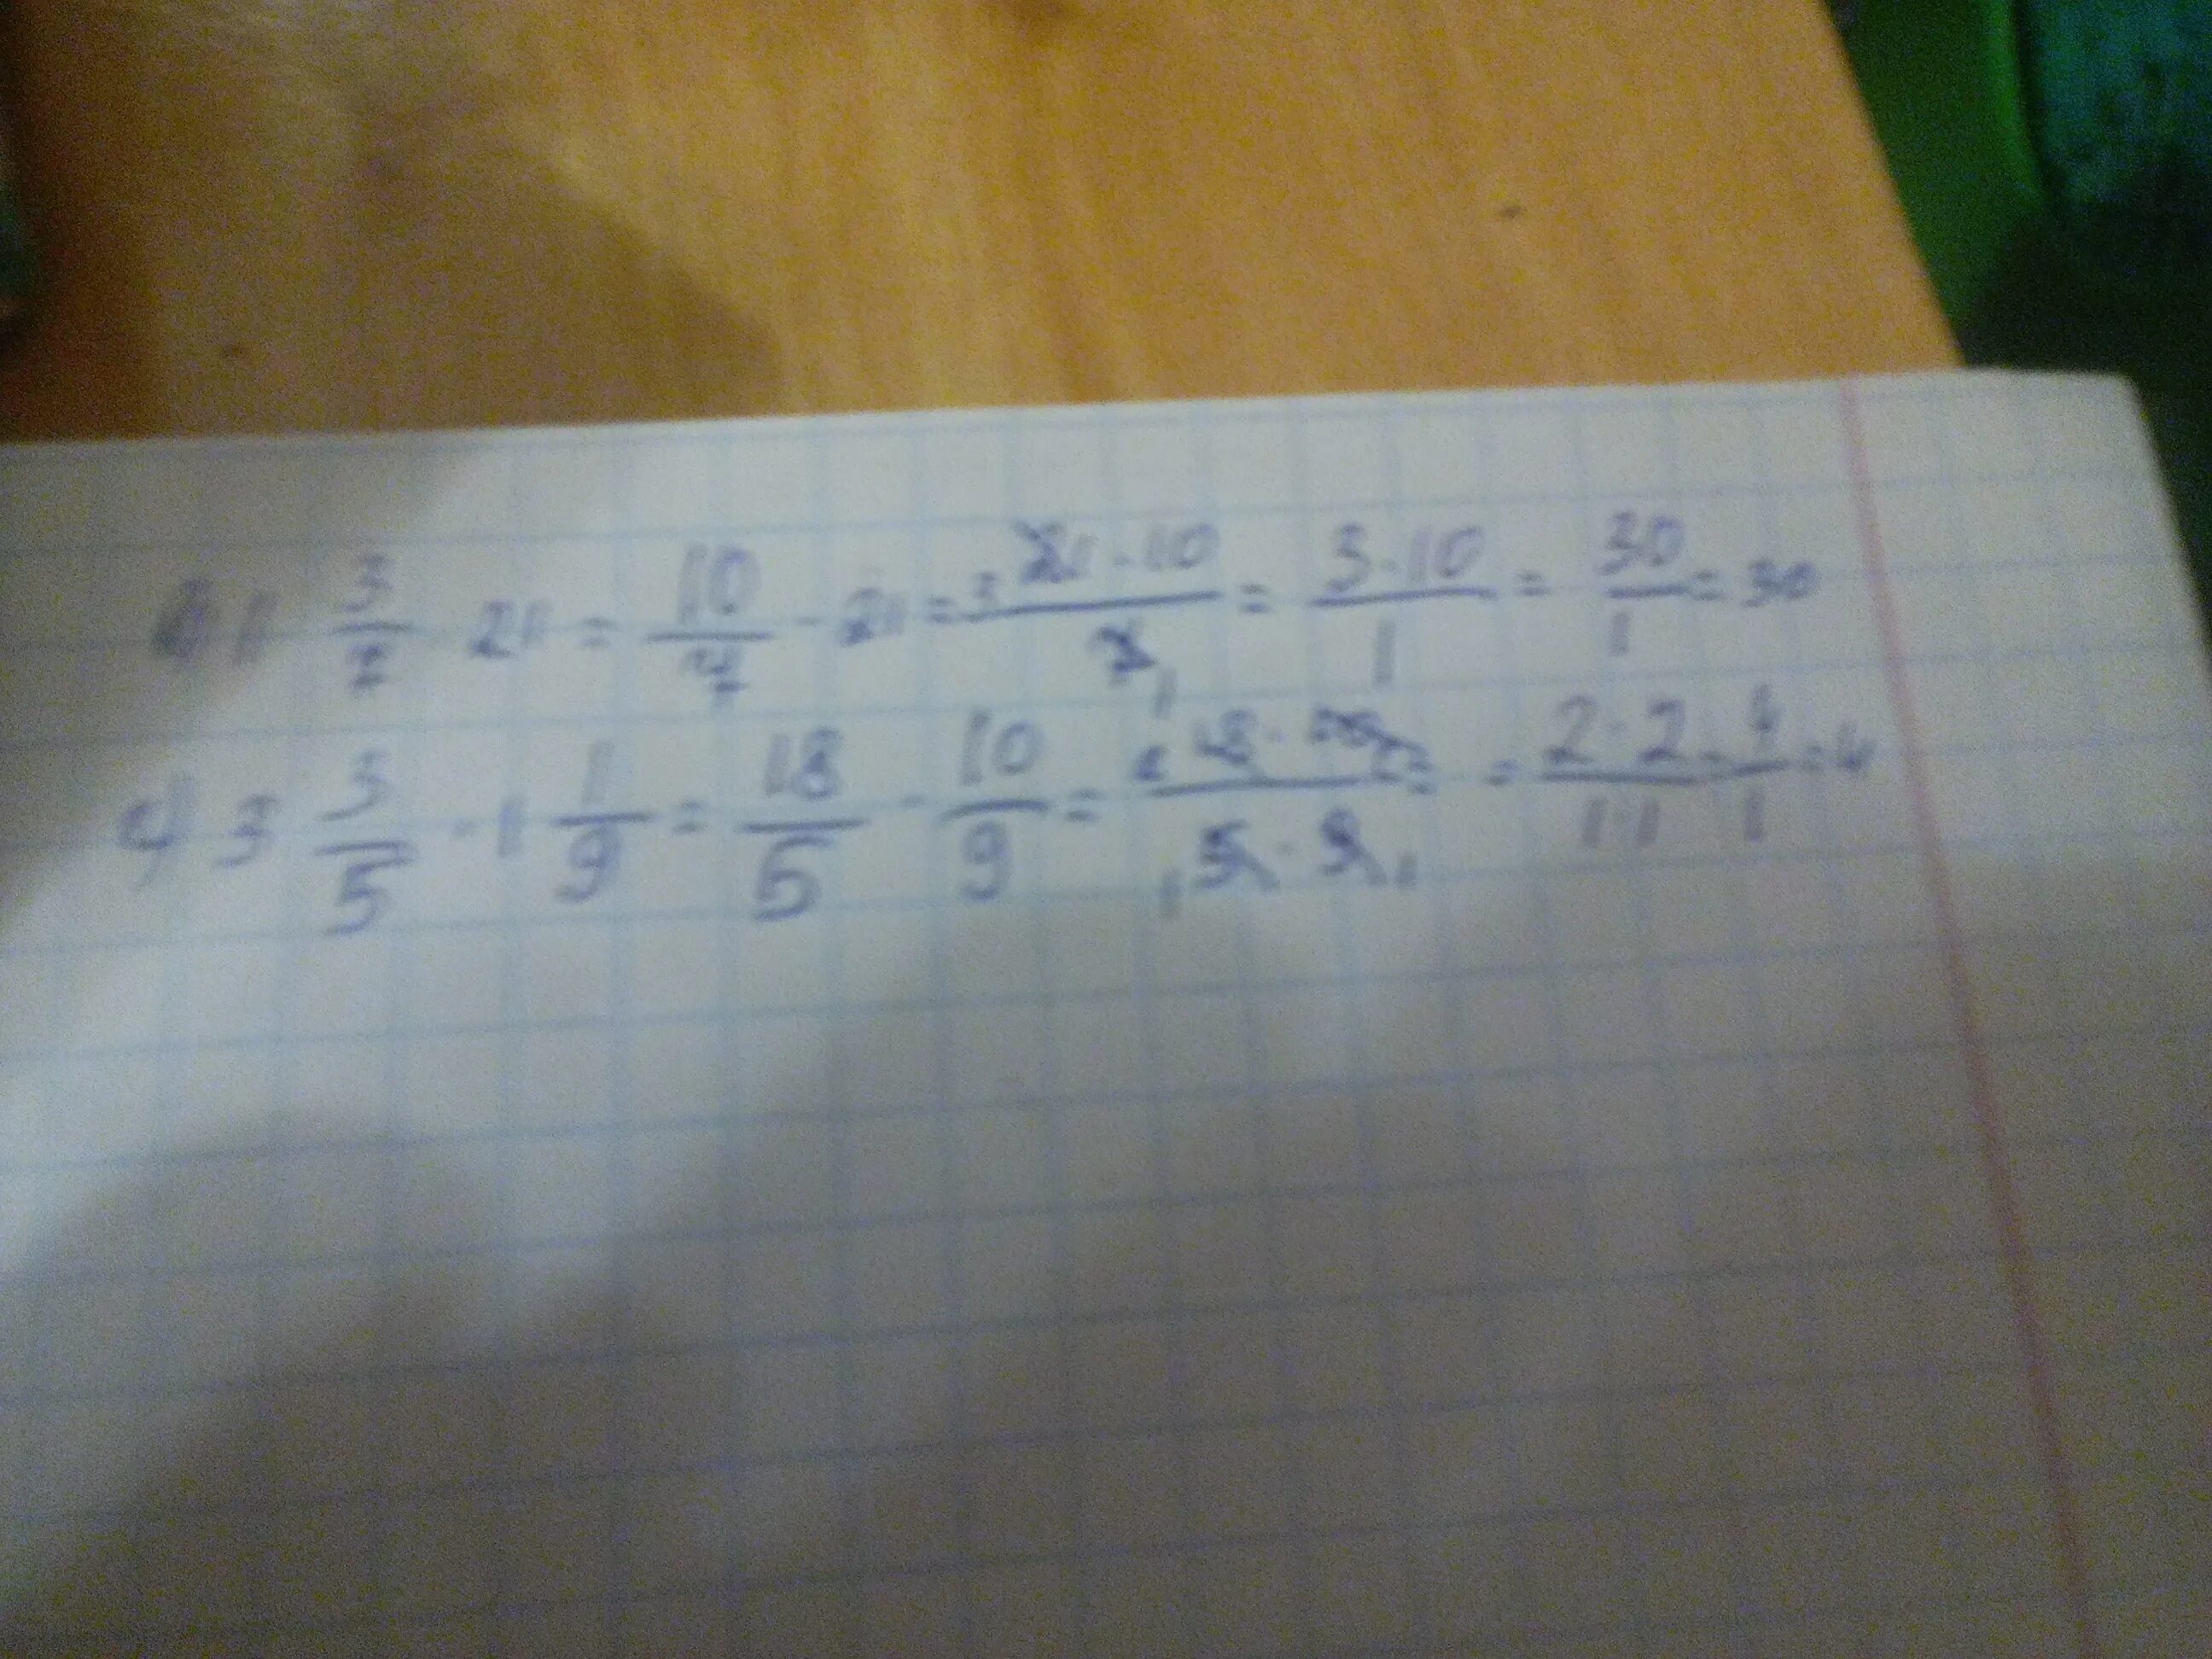 1 3/7 · 21 = 10/7 · 21 = 21·10/7 = 3·10/1 = 30/1 = 30
4) 3 3/5 · 1 1/9 = 18/5 · 10/9 = 18·10/5·9 = = 2·2/1·1 = 4/1 = 4